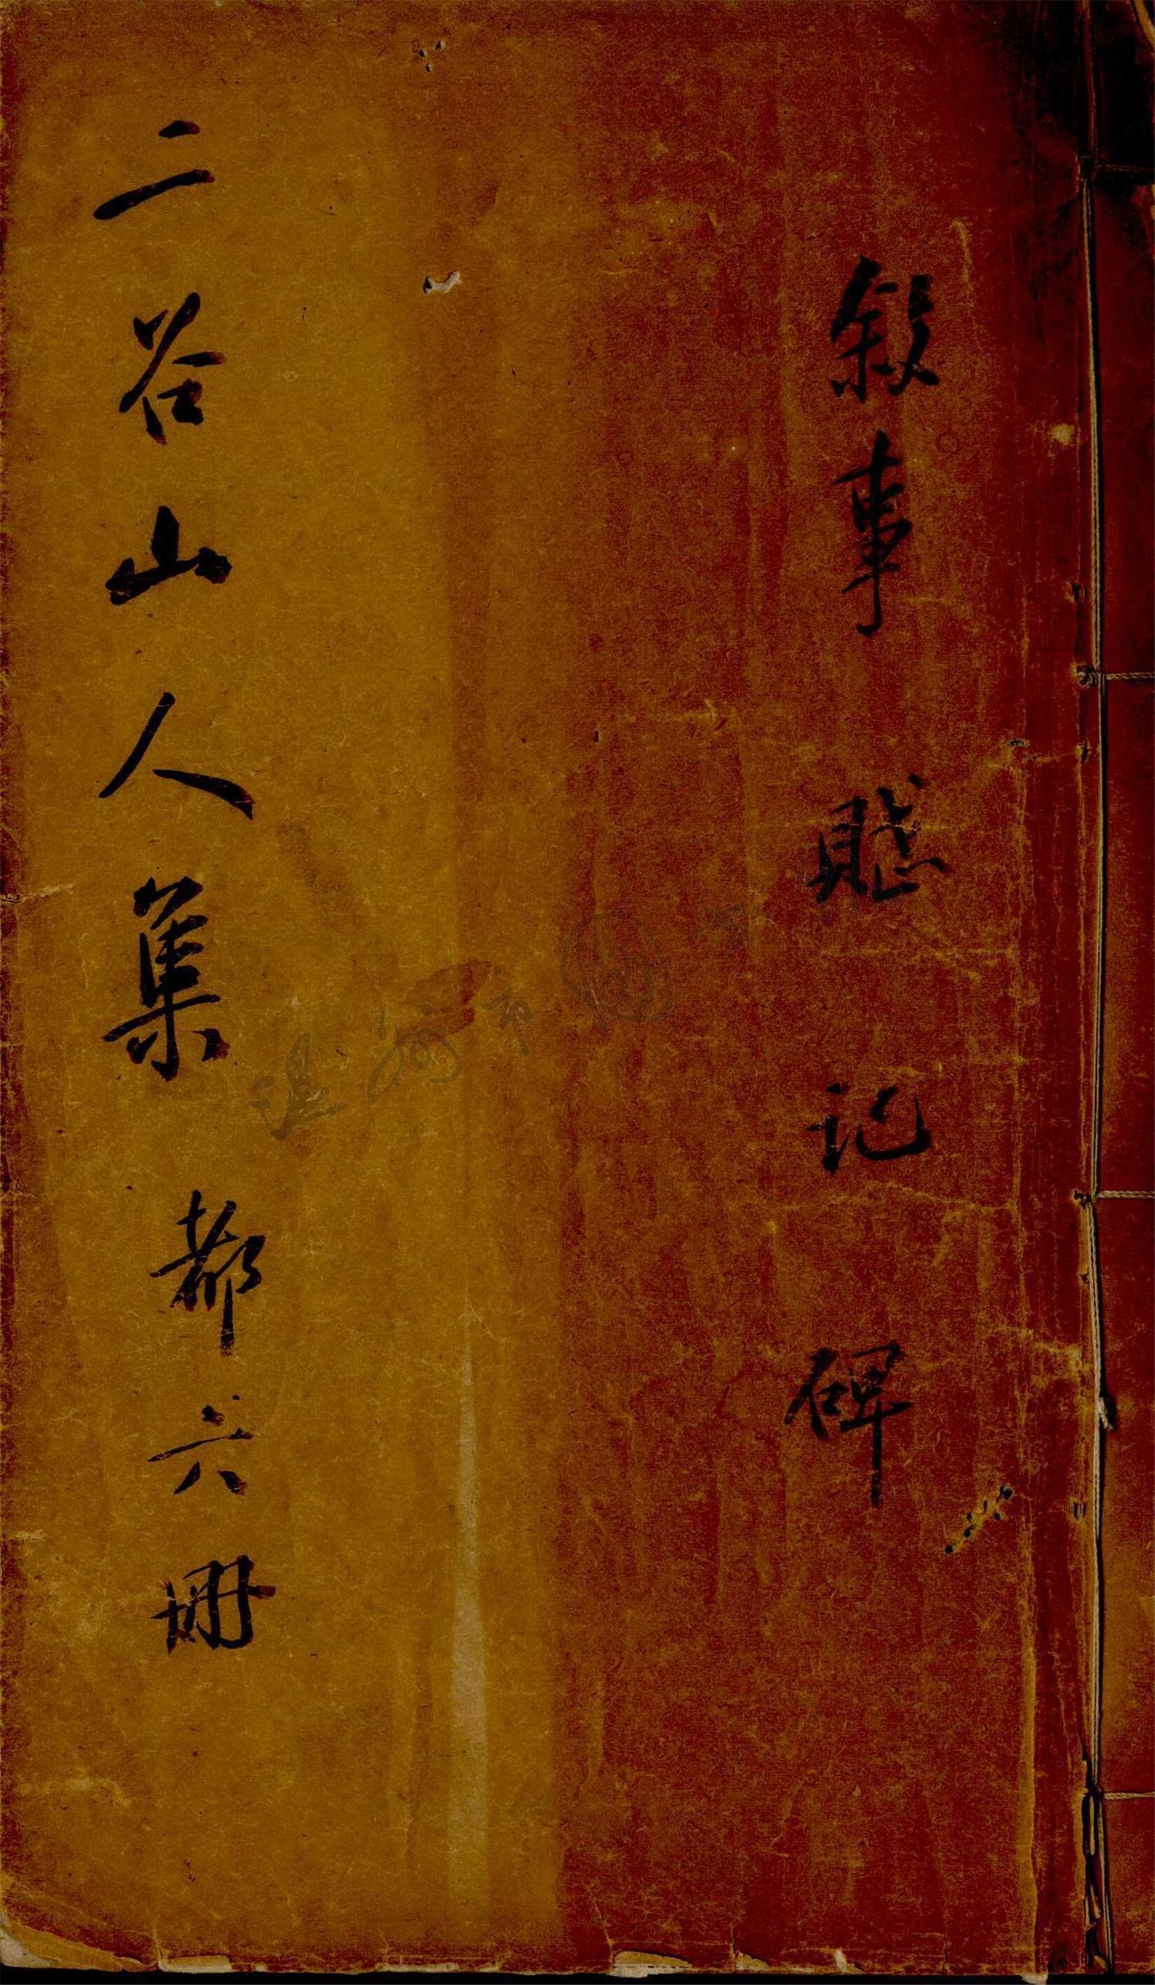 敘事 賦 记 碑
二谷山人集 都六冊